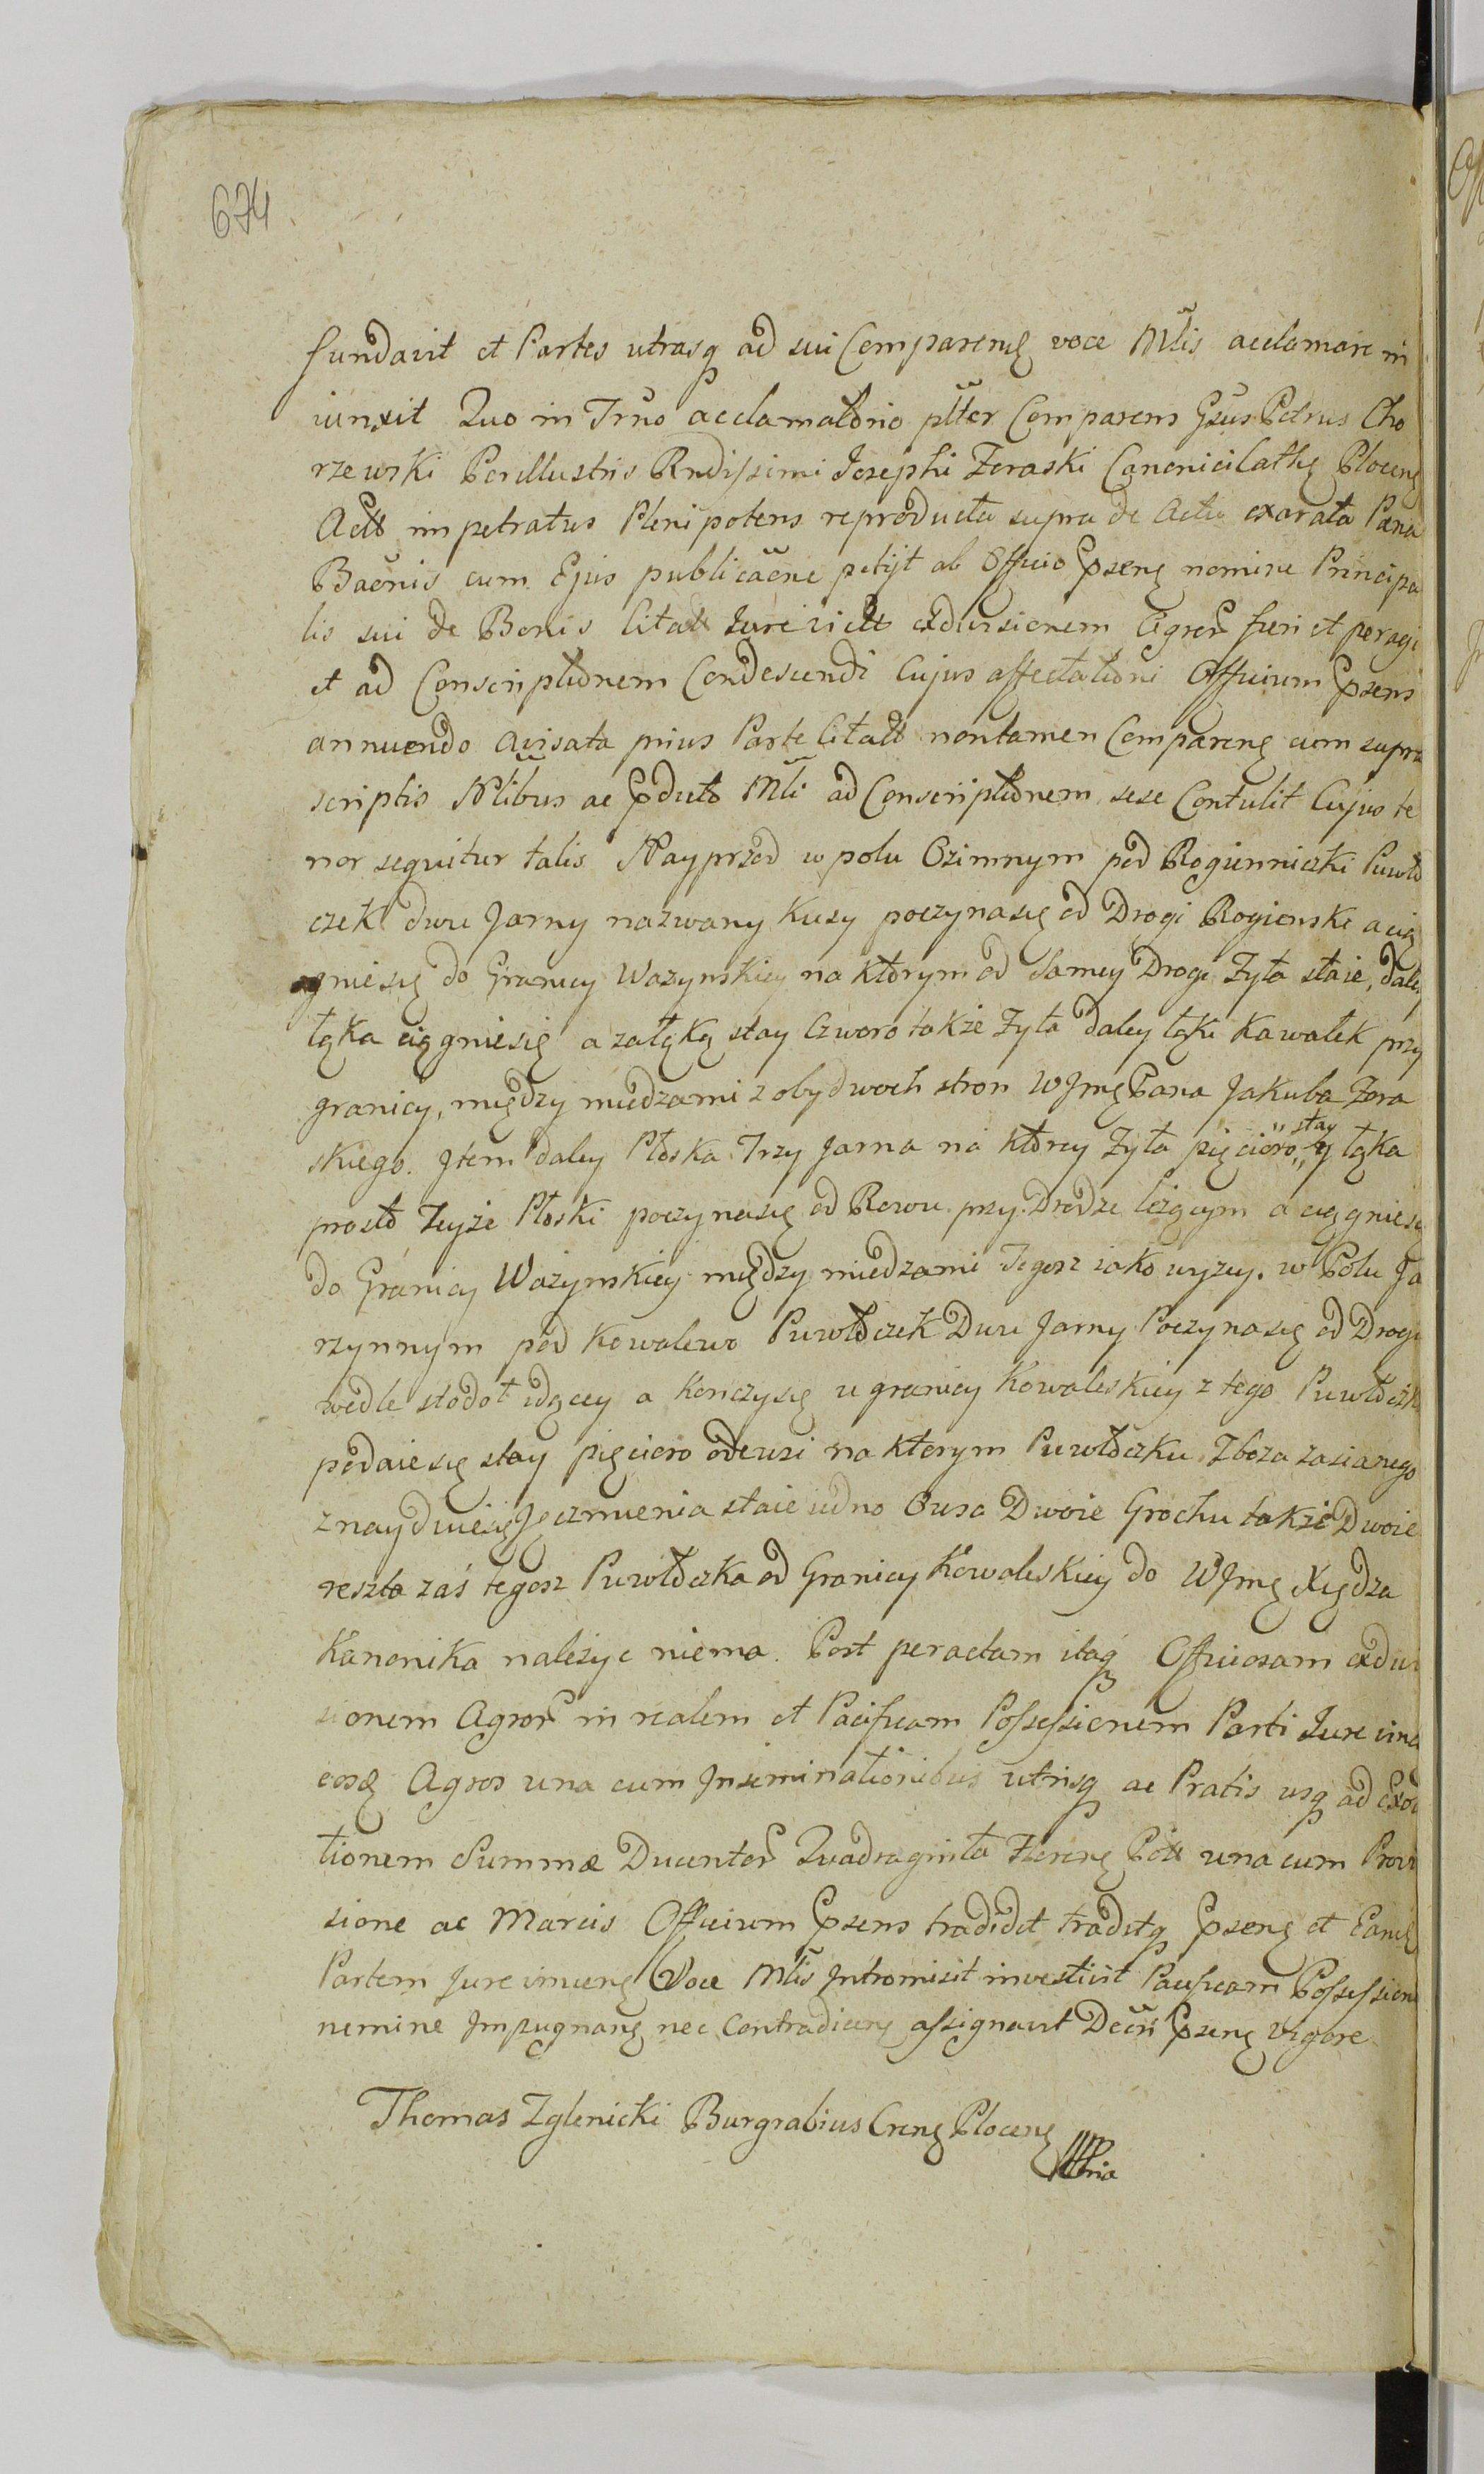 674
fundavit et Partes utrasq ad sui Comparenę voce Mlis acclamare in
iunxit Quo in Trno acclamatorio plter Comparens Gsus Petrus Cho
rzewski Perillustris Rndissimi Josephi Zoraski Canonici Cathę Plocenę
Actt impetratus Plenipotens reproducta supra de Actu exarata Pæna
Bacnis cum Ejus publicacne petijt ab Officio Ppsenę nomine Principa
lis sui de Bonis Citatt Jure victt exdivisionem Agror fieri et peragi
et ad Conscriptionem Condescendi Cujus affectationi Officium Ppsens
annuendo avisata prius Parte Citatt nontamen Comparenę cum supra
scriptis Nlibus ac Ppducto Mli ad Conscriptionem sese Contulit Cujus te
nor sequitur talis Nayprzod w polu Ozimnym pod Rogienniczki Puwło
czek dwu Jarny nazwany Kusy poczyna się od Drogi Rogienski a cią
gnie się do Granicy Wazynskiey na ktorym od Samey Drogi Zyta staie, daley
łąka ciągnie się a załąką stay Czworo także Zyta daley łąki Kawałek przy
granicy, między miedzami z obydwoch stron WJmę Pana Jakuba Zora
skiego. Jtem daley Płoska Trzy Jarna na ktorey Zyta pięcioro " stay " y łąka
prosto Teyże Płoski poczyna się od Rowu przy Drodze leżącym a ciągnie się
do Granicy Wazynskiey między miedzami Tegosz iako wyzey. w Polu Ja
rzynnym pod Kowalewo Puwłoczek Dwu Jarny Poczyna się od Drogi
wedle stodoł idącey a Konczy się u granicy Kowaleskiey z tego Puwłoczka
podaie się stay pięcioro od wsi na ktorym Puwłoczku Zboza zasianego
znayduie się Jęczmienia staie iedno Owsa Dwoie Grochu także Dwoie
reszta zaś tegosz Puwłoczka od Granicy Kowaleskiey do WJmę Xiędza
Kanonika należyc niema. Post peractam itaq Officiosam exdivi
sionem Agror in realem et Pacificam Possessionem Parti Jure vinc
eosq Agros una cum Jnseminationibus utrisq ac Pratis usq ad Exol
tionem Summæ Ducentor Quadraginta Florenę Poll una cum Provi
sione ac Marcis Officium Ppsens tradidit traditq Ppsenę et Eand
Partem Jure vincenę Voce Mlis Jntromisit investivit Pacificam Possession
nemine Jmpugnanę nec Contradicenę assignavit Decri Ppsenę vigore
Thomas Zglenicki Burgrabius Crenę Plocenę
Mpria